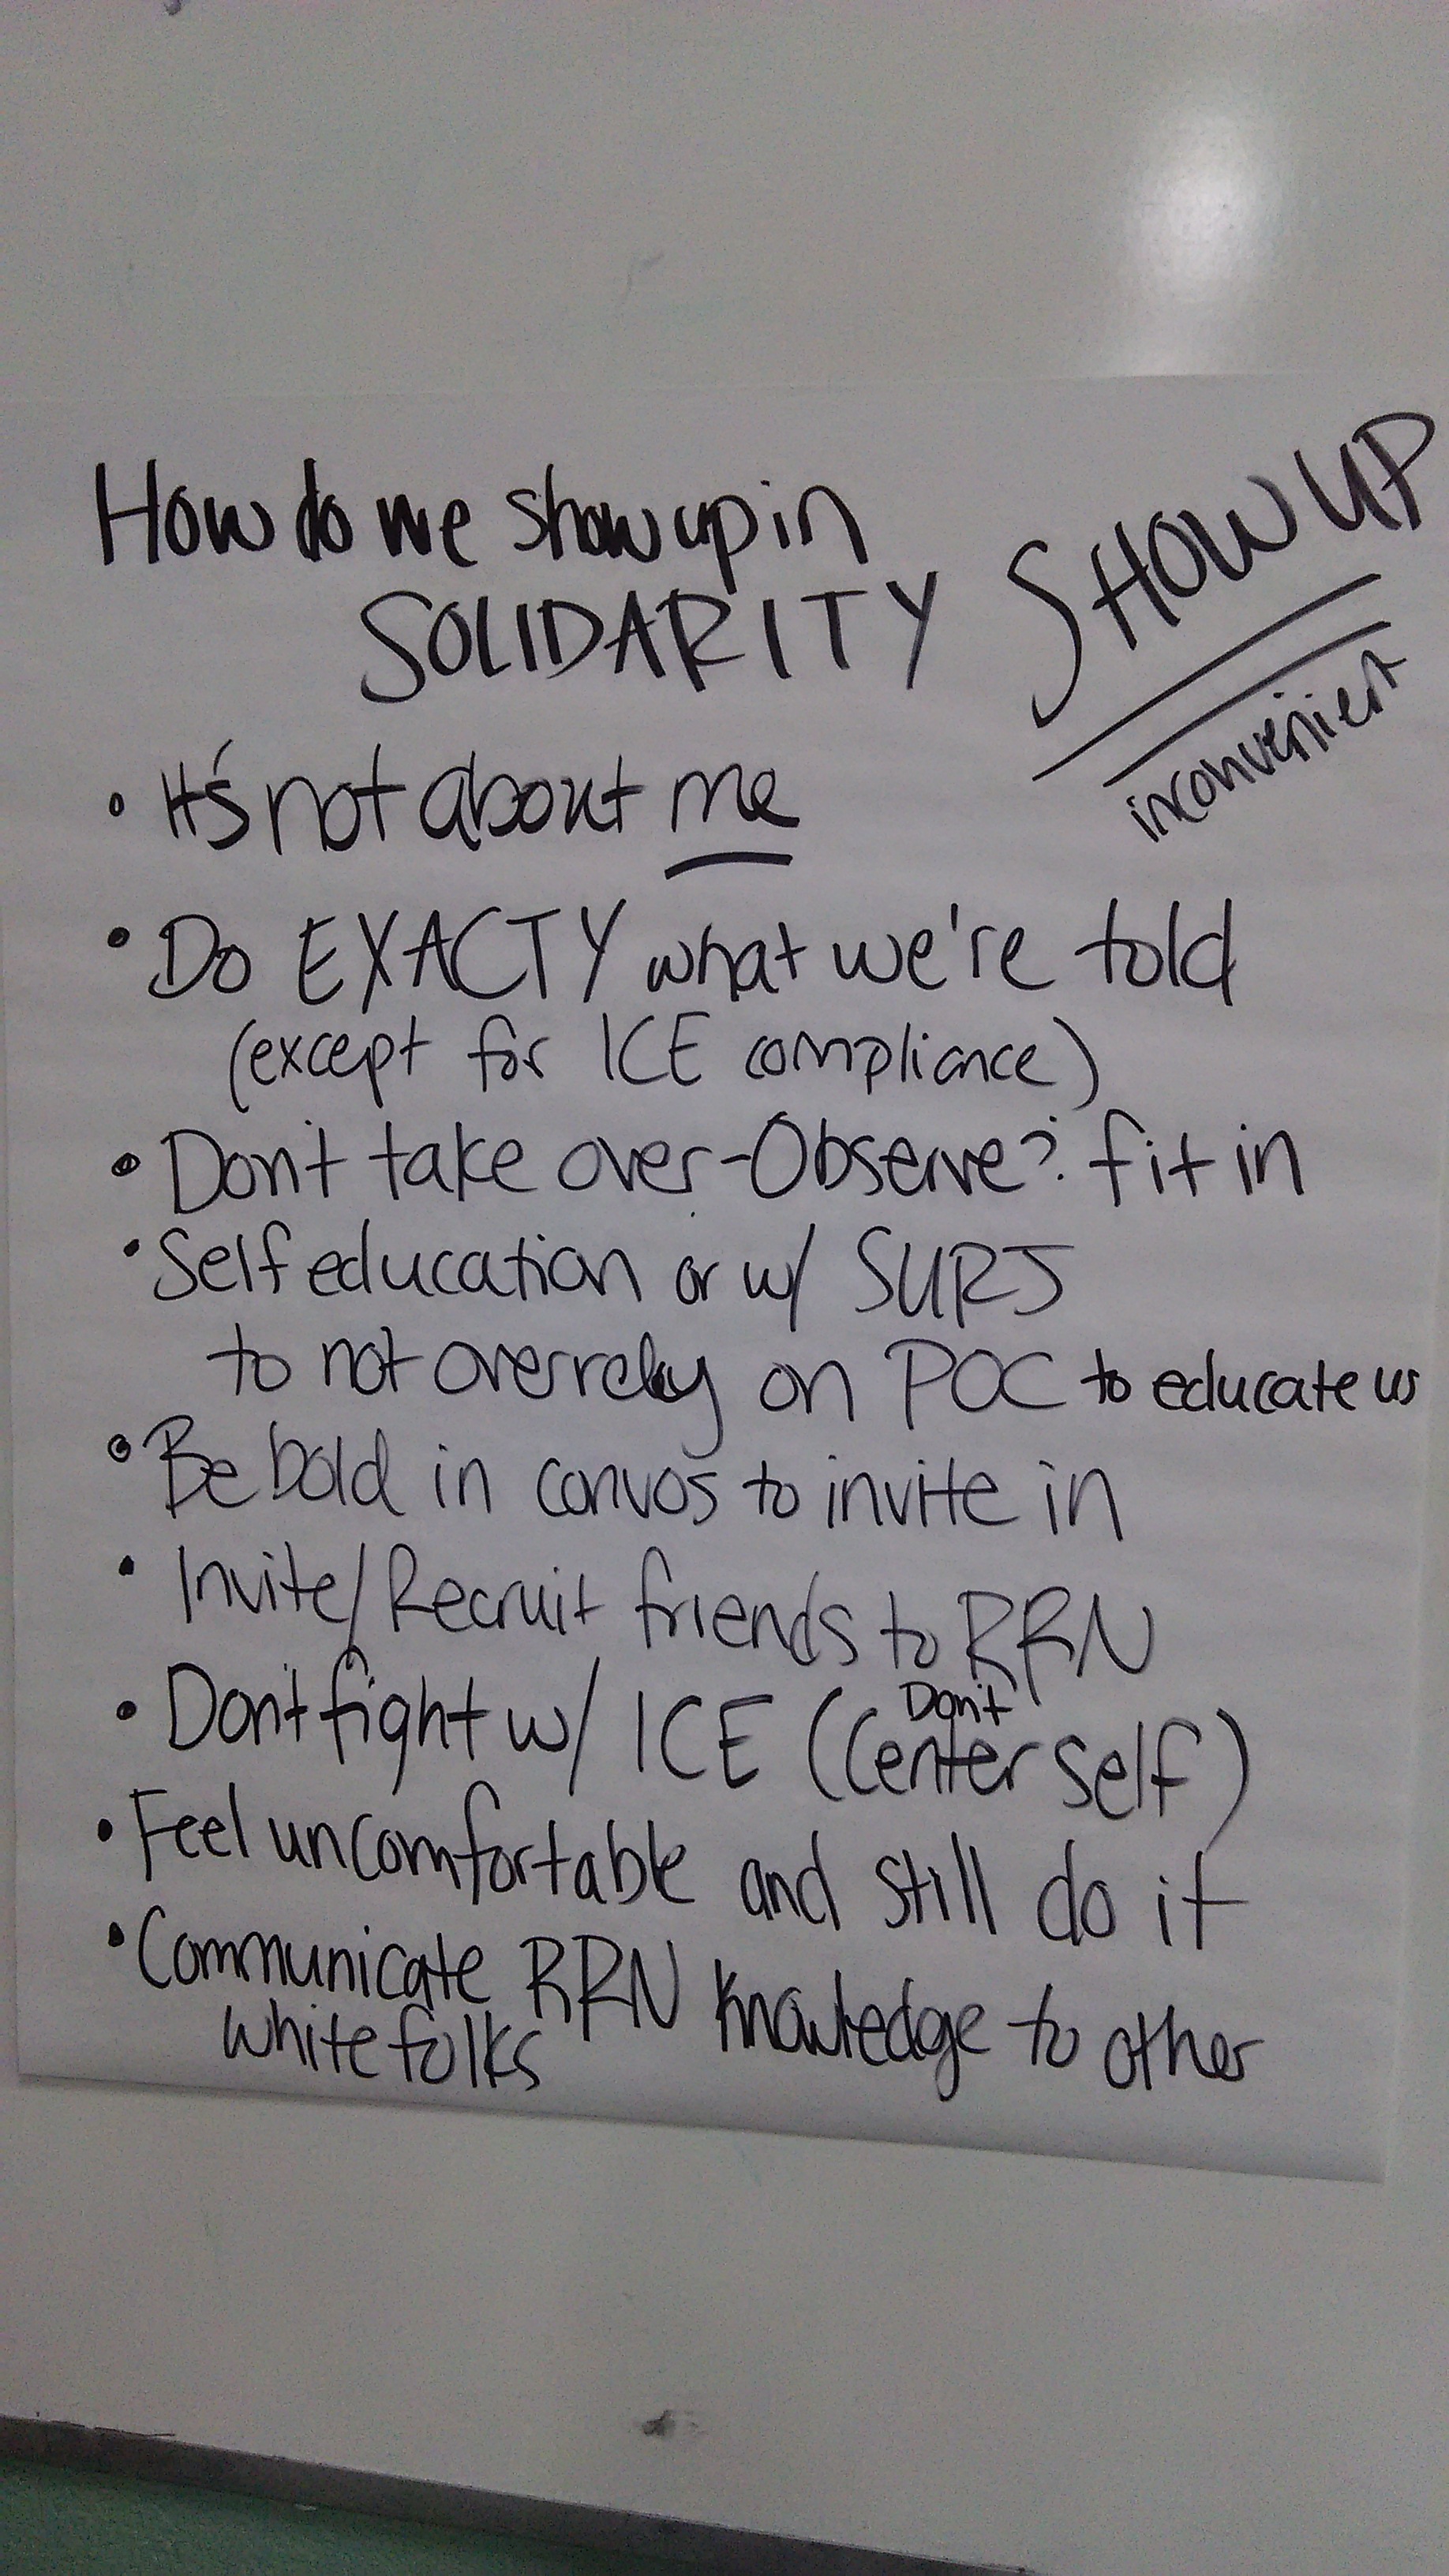 How do we show up in
SOLIDARITY
SHOW UP
inconvenient
• It's not about me
• Do EXACTY what we're told
(except for ICE compliance)
• Don't take over-Observe? fit in
• Self education or w/ SURJ
to not overrely on POC to educate us
• Be bold in convos to invite in
• Invite/Recruit friends to RRN
• Don't fight w/ ICE (Don't Center self)
• Feel uncomfortable and still do it
• Communicate RRN knowledge to other
white folks